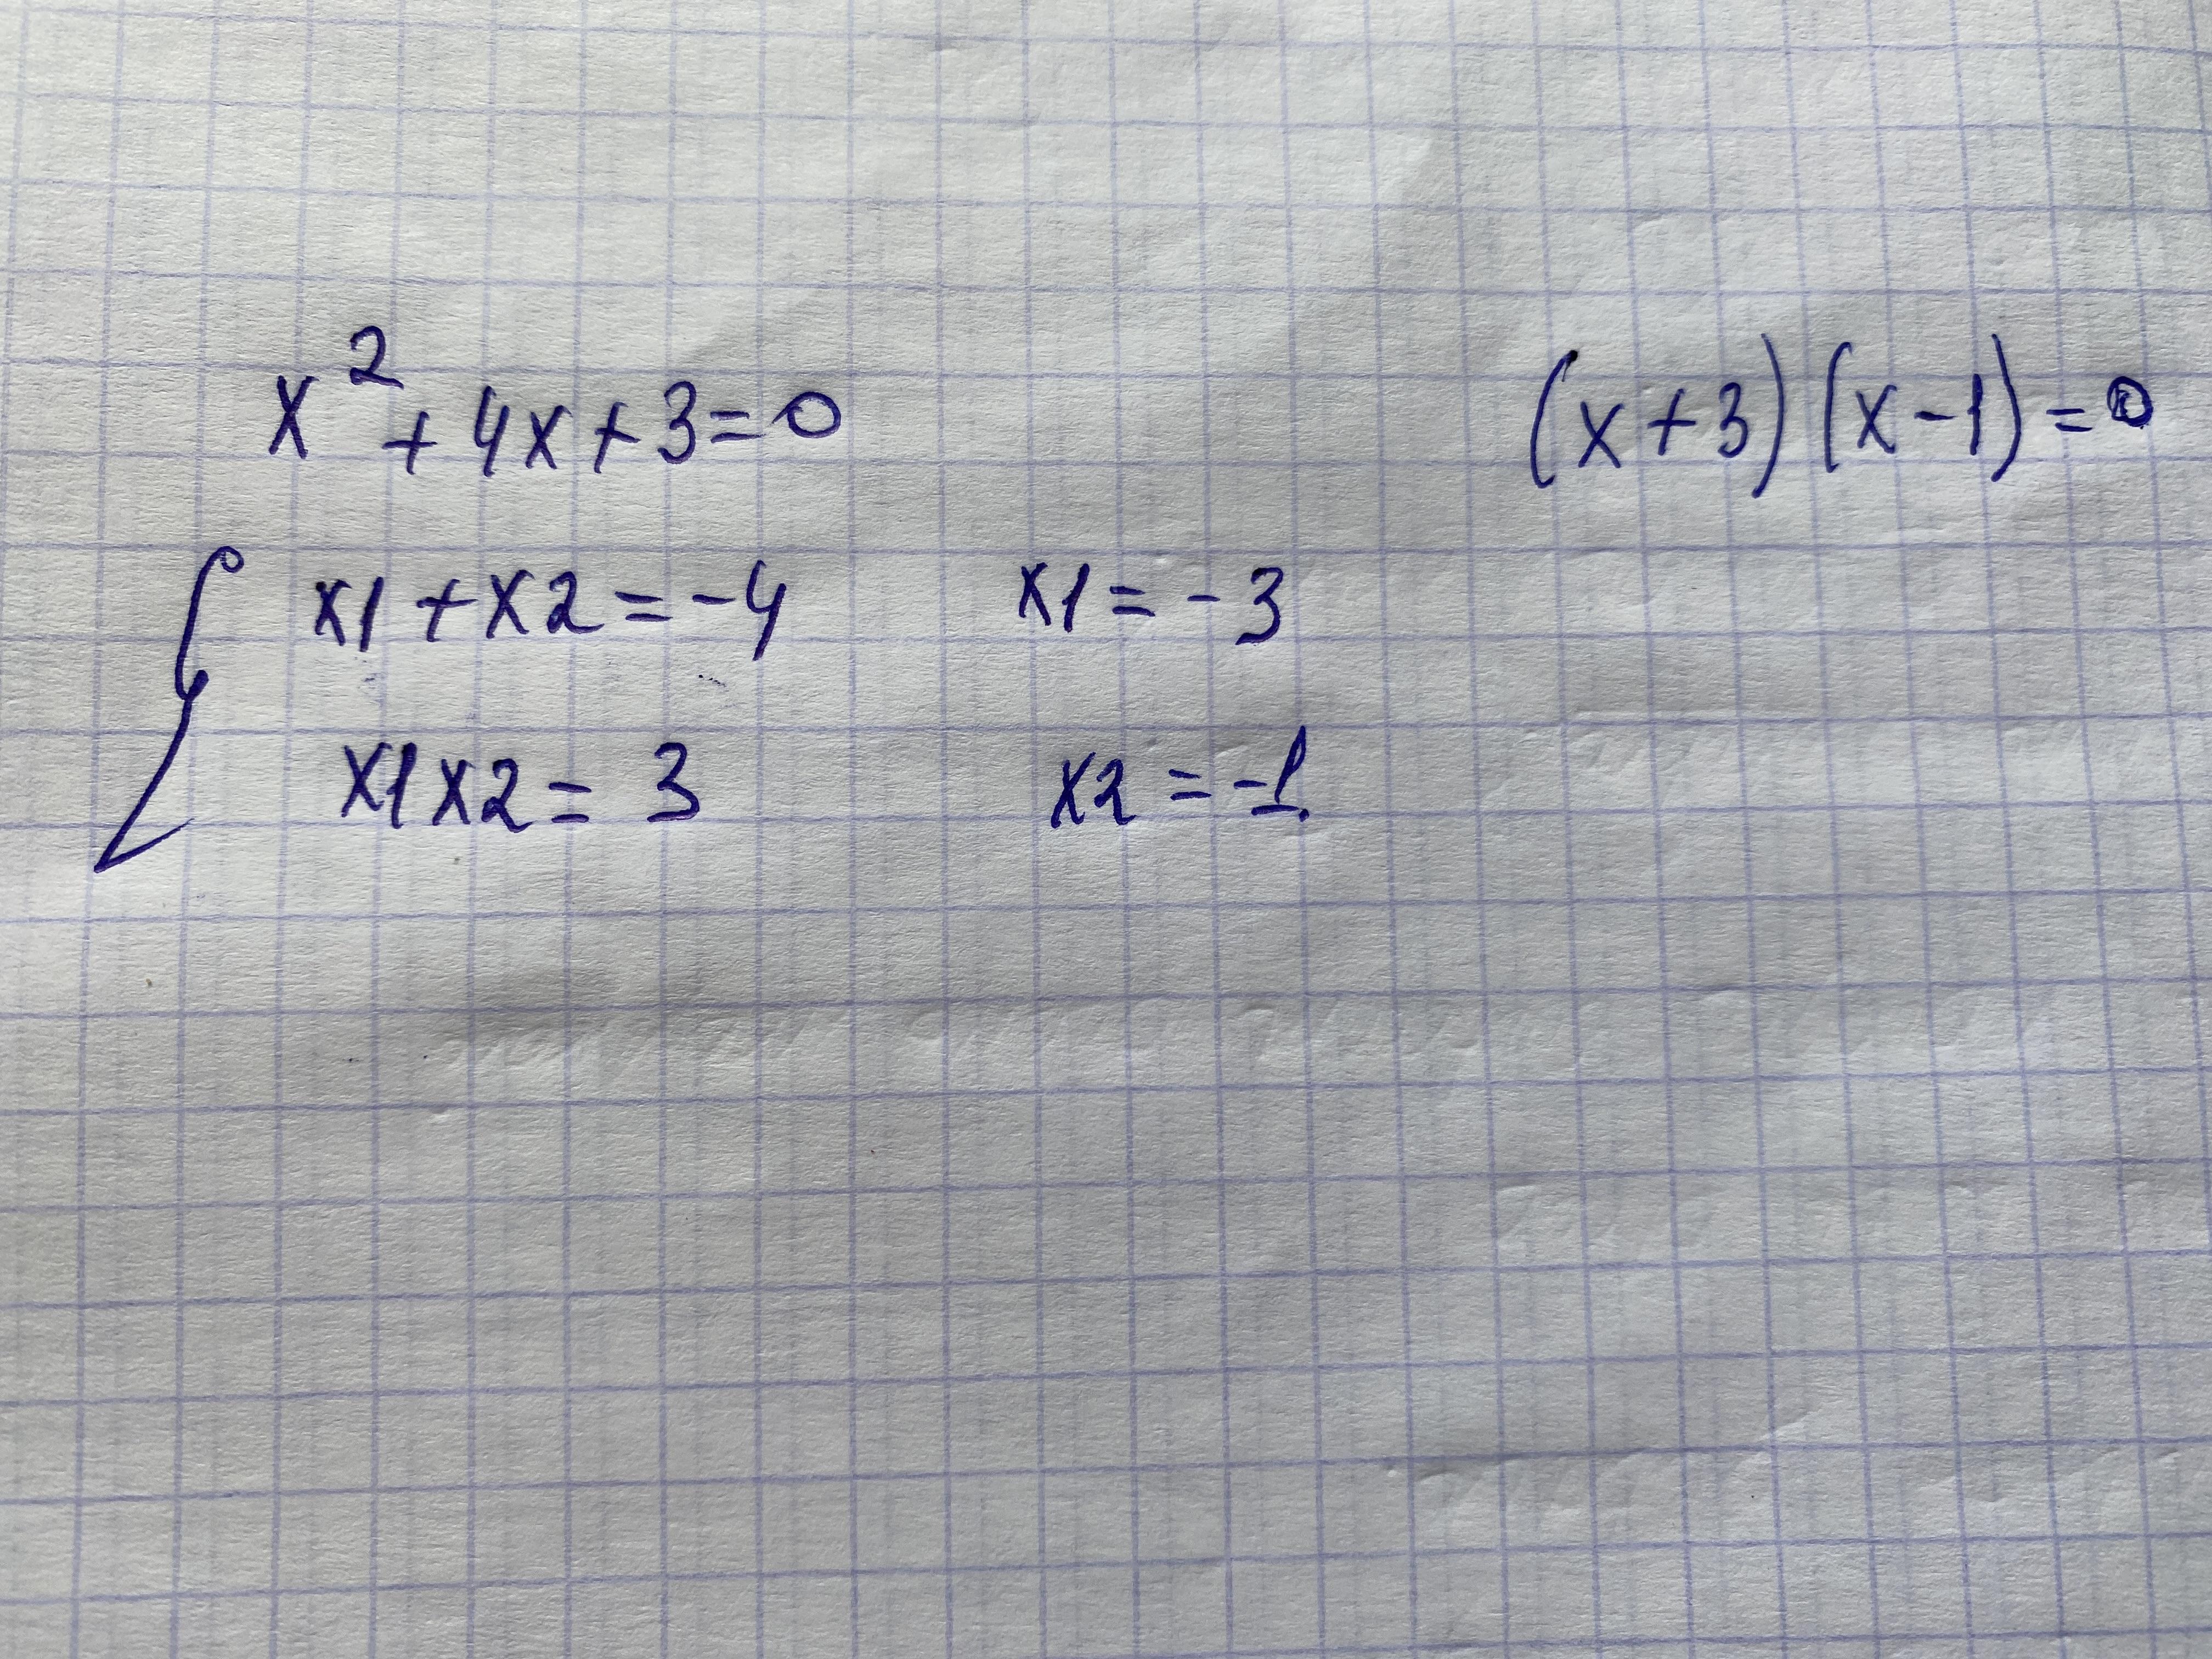 x² + 4x + 3 = 0 (x + 3) (x - 1) = 0
x1 + x2 = -4 x1 = - 3
x1 x2 = 3 x2 = -1.